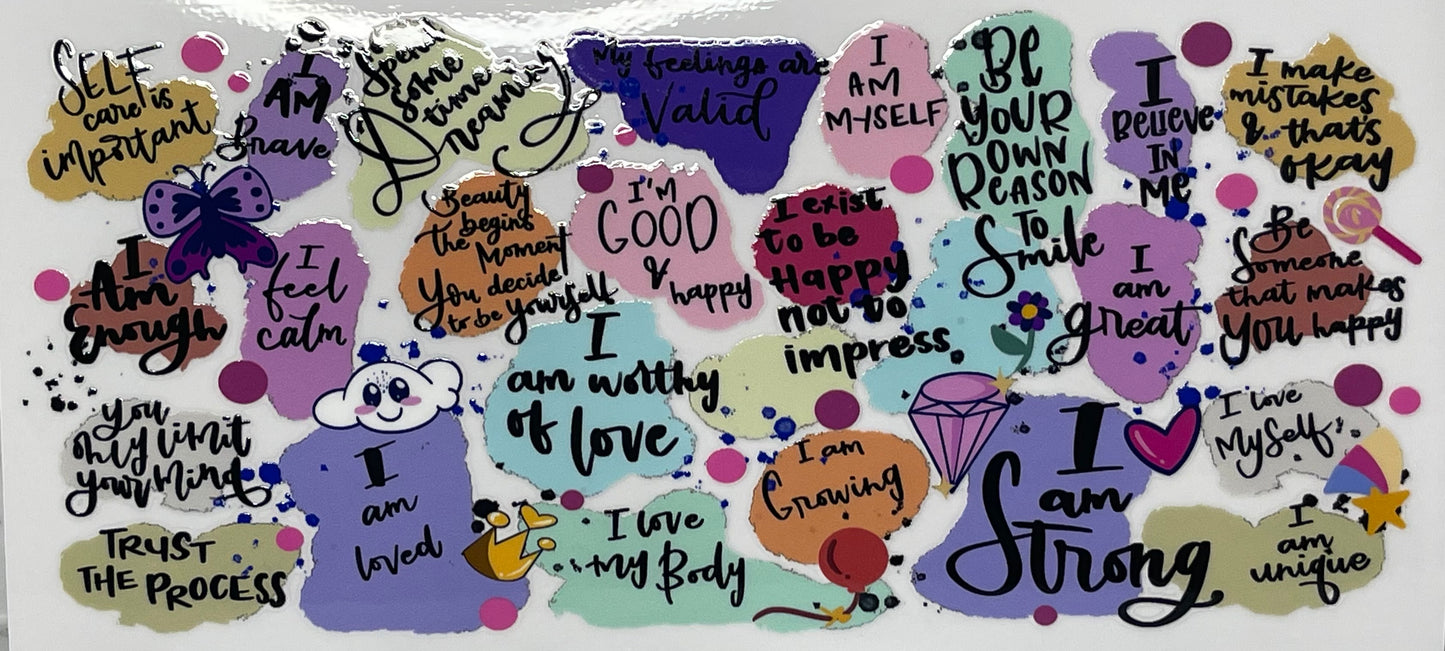 SELF
care is
important
I
AM
Brave
Spend
some
time
Dreaming
My feelings are
Valid
I
AM
MYSELF
BE
YOUR
OWN
REASON
To
Smile
I
BELIEVE
IN
ME
I make
mistakes
& that's
okay
I
Am
Enough
I
feel
calm
Beauty
begins
the Moment
You decide
to be Yourself
I'M
GOOD
&
happy
I exist
to be
Happy
not to
impress.
I
am
great
Be
Someone
that makes
you happy
you
only limit
your Mind
I
am
loved
I
am worthy
of love
I am
Growing
I
am
Strong
I love
MySelf
TRUST
THE PROCESS
I love
my Body
I
am
unique